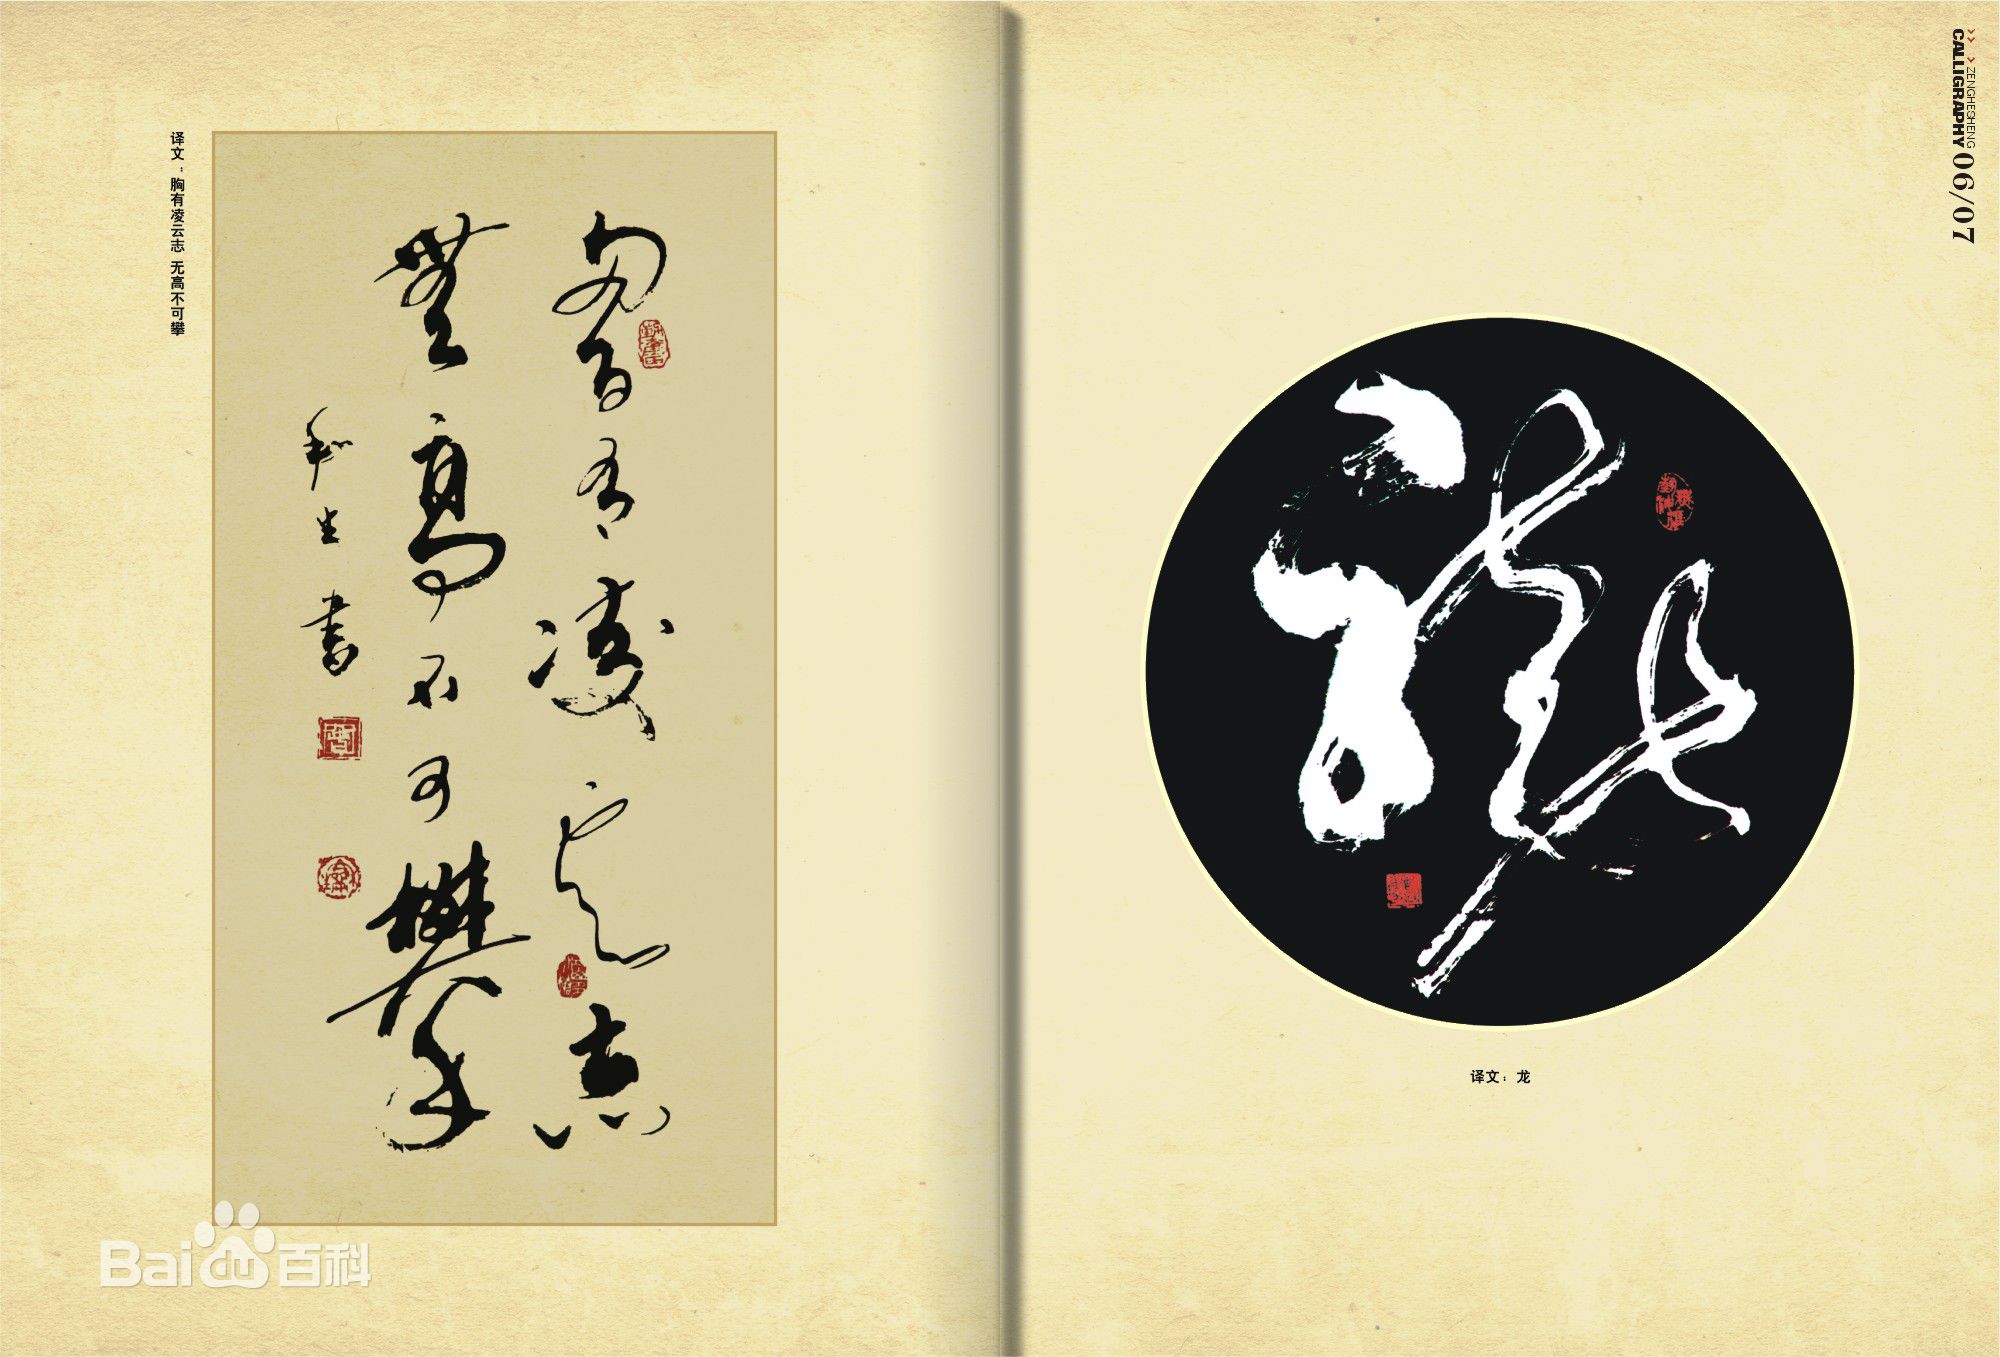 译文：胸有凌云志 无高不可攀
胷有凌雲志
無高不可攀
和生書
Bai du 百科
ZENGHESHENG
CALLIGRAPHY 06/07
龍
译文：龙